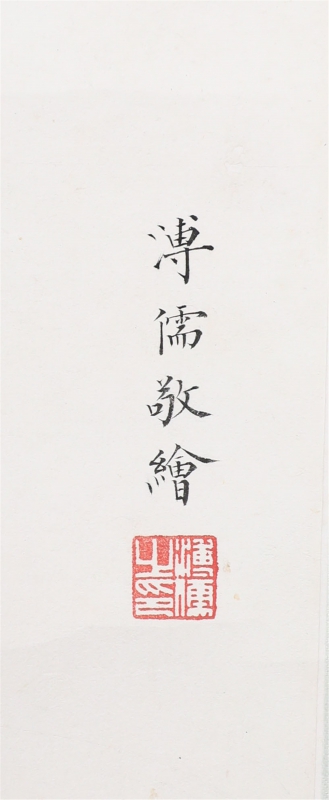 溥儒敬繪
溥儒之印